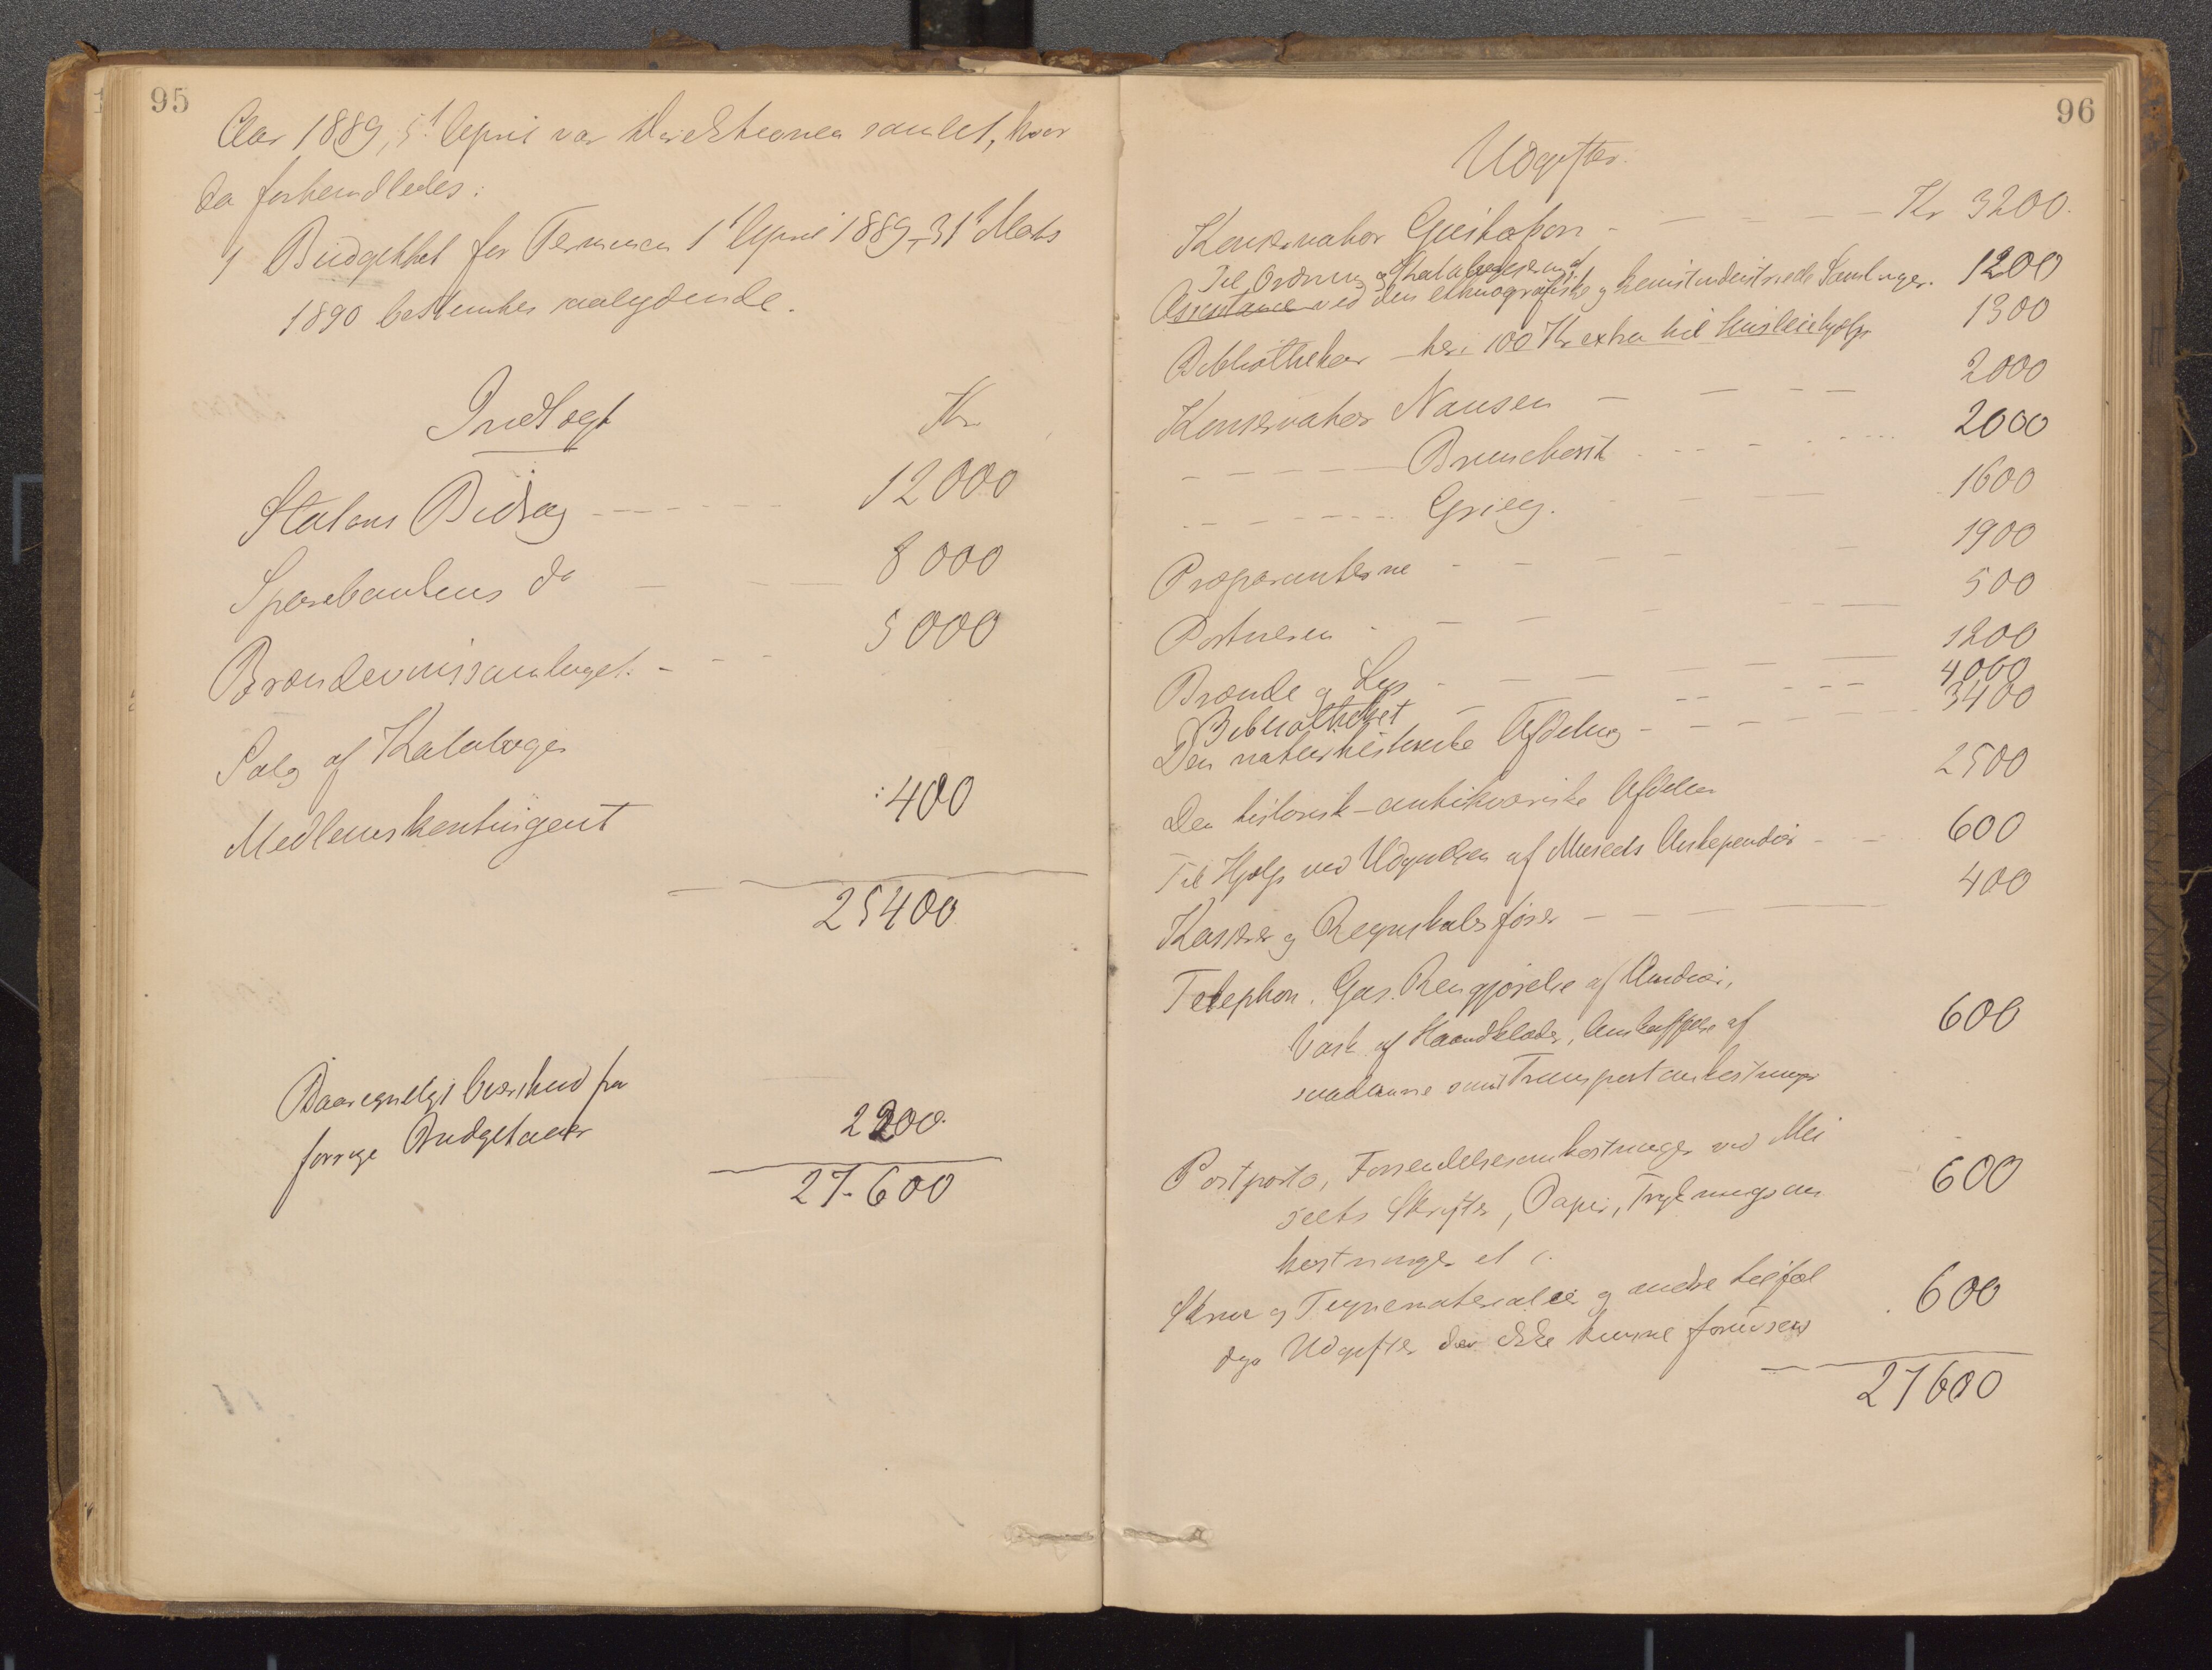 95
Aar 1889, 5t April var Direktionen samlet, hvor
da forhandledes:
1 Budgettet for Terminen 1t April 1889–31t Mats
1890 bestemtes saalydende.
Indtægt Kr.
Statens Bidrag ------- 12000
Sparebankens do — — — 8000
Brændevinssamlaget. - - - 5000
Salg af Kataloger
Medlemskontingent 400
25400
Paaregneligt Overskud fra
forrige Budgetaar 2200.
27.600
96
Udgifter.
Konservator Gustafson - — — — — Kr 3200.
Til Ordning og Katalogisering af
Assistance ved den ethnografiske og kunstindustrielle Samlinger. 1200
Bibliothekar — heri 100 Kr extra til Huslejehjælp 1300
Konservator Nansen — — — — 2000
— — — — — Brunchorst - - - - - 2000
- - - - - - - Grieg. — — — 1600
Præparanterne - - — — — 1900
Portneren - — — — — 500
Brænde og Lys - — — — — 1200
Bibliotheket — — - - - 4000
Den naturhistoriske Afdeling - — — — — 3400
Den historisk-antikvariske Afdelin 2500
Til Hjælp ved Udgivelsen af Museets — — 600
Kasserer og Regnskabsfører — — — — 400
Telephon. Gas. Rengjørelse af
Vask af Haandklæder, Anskaffelse af 600
saadanne samt Transportomkostninger
Postporto, Forsendelsesomkostninger ved Mu
seets Skrifter, Papir, Trykningsom 600
kostninger et c.
Skrive og Tegnematerialier og andre tilfæl
dige Udgifter der ikke kunne forudsees 600
27600